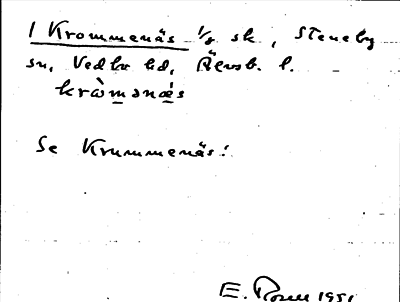 1 Krommenäs 1/2 sk, Steneby
sn, Vedbo hd, Älvsb. l.
kròmənæ̀s
Se Krummenäs!
E. Rosell 1951